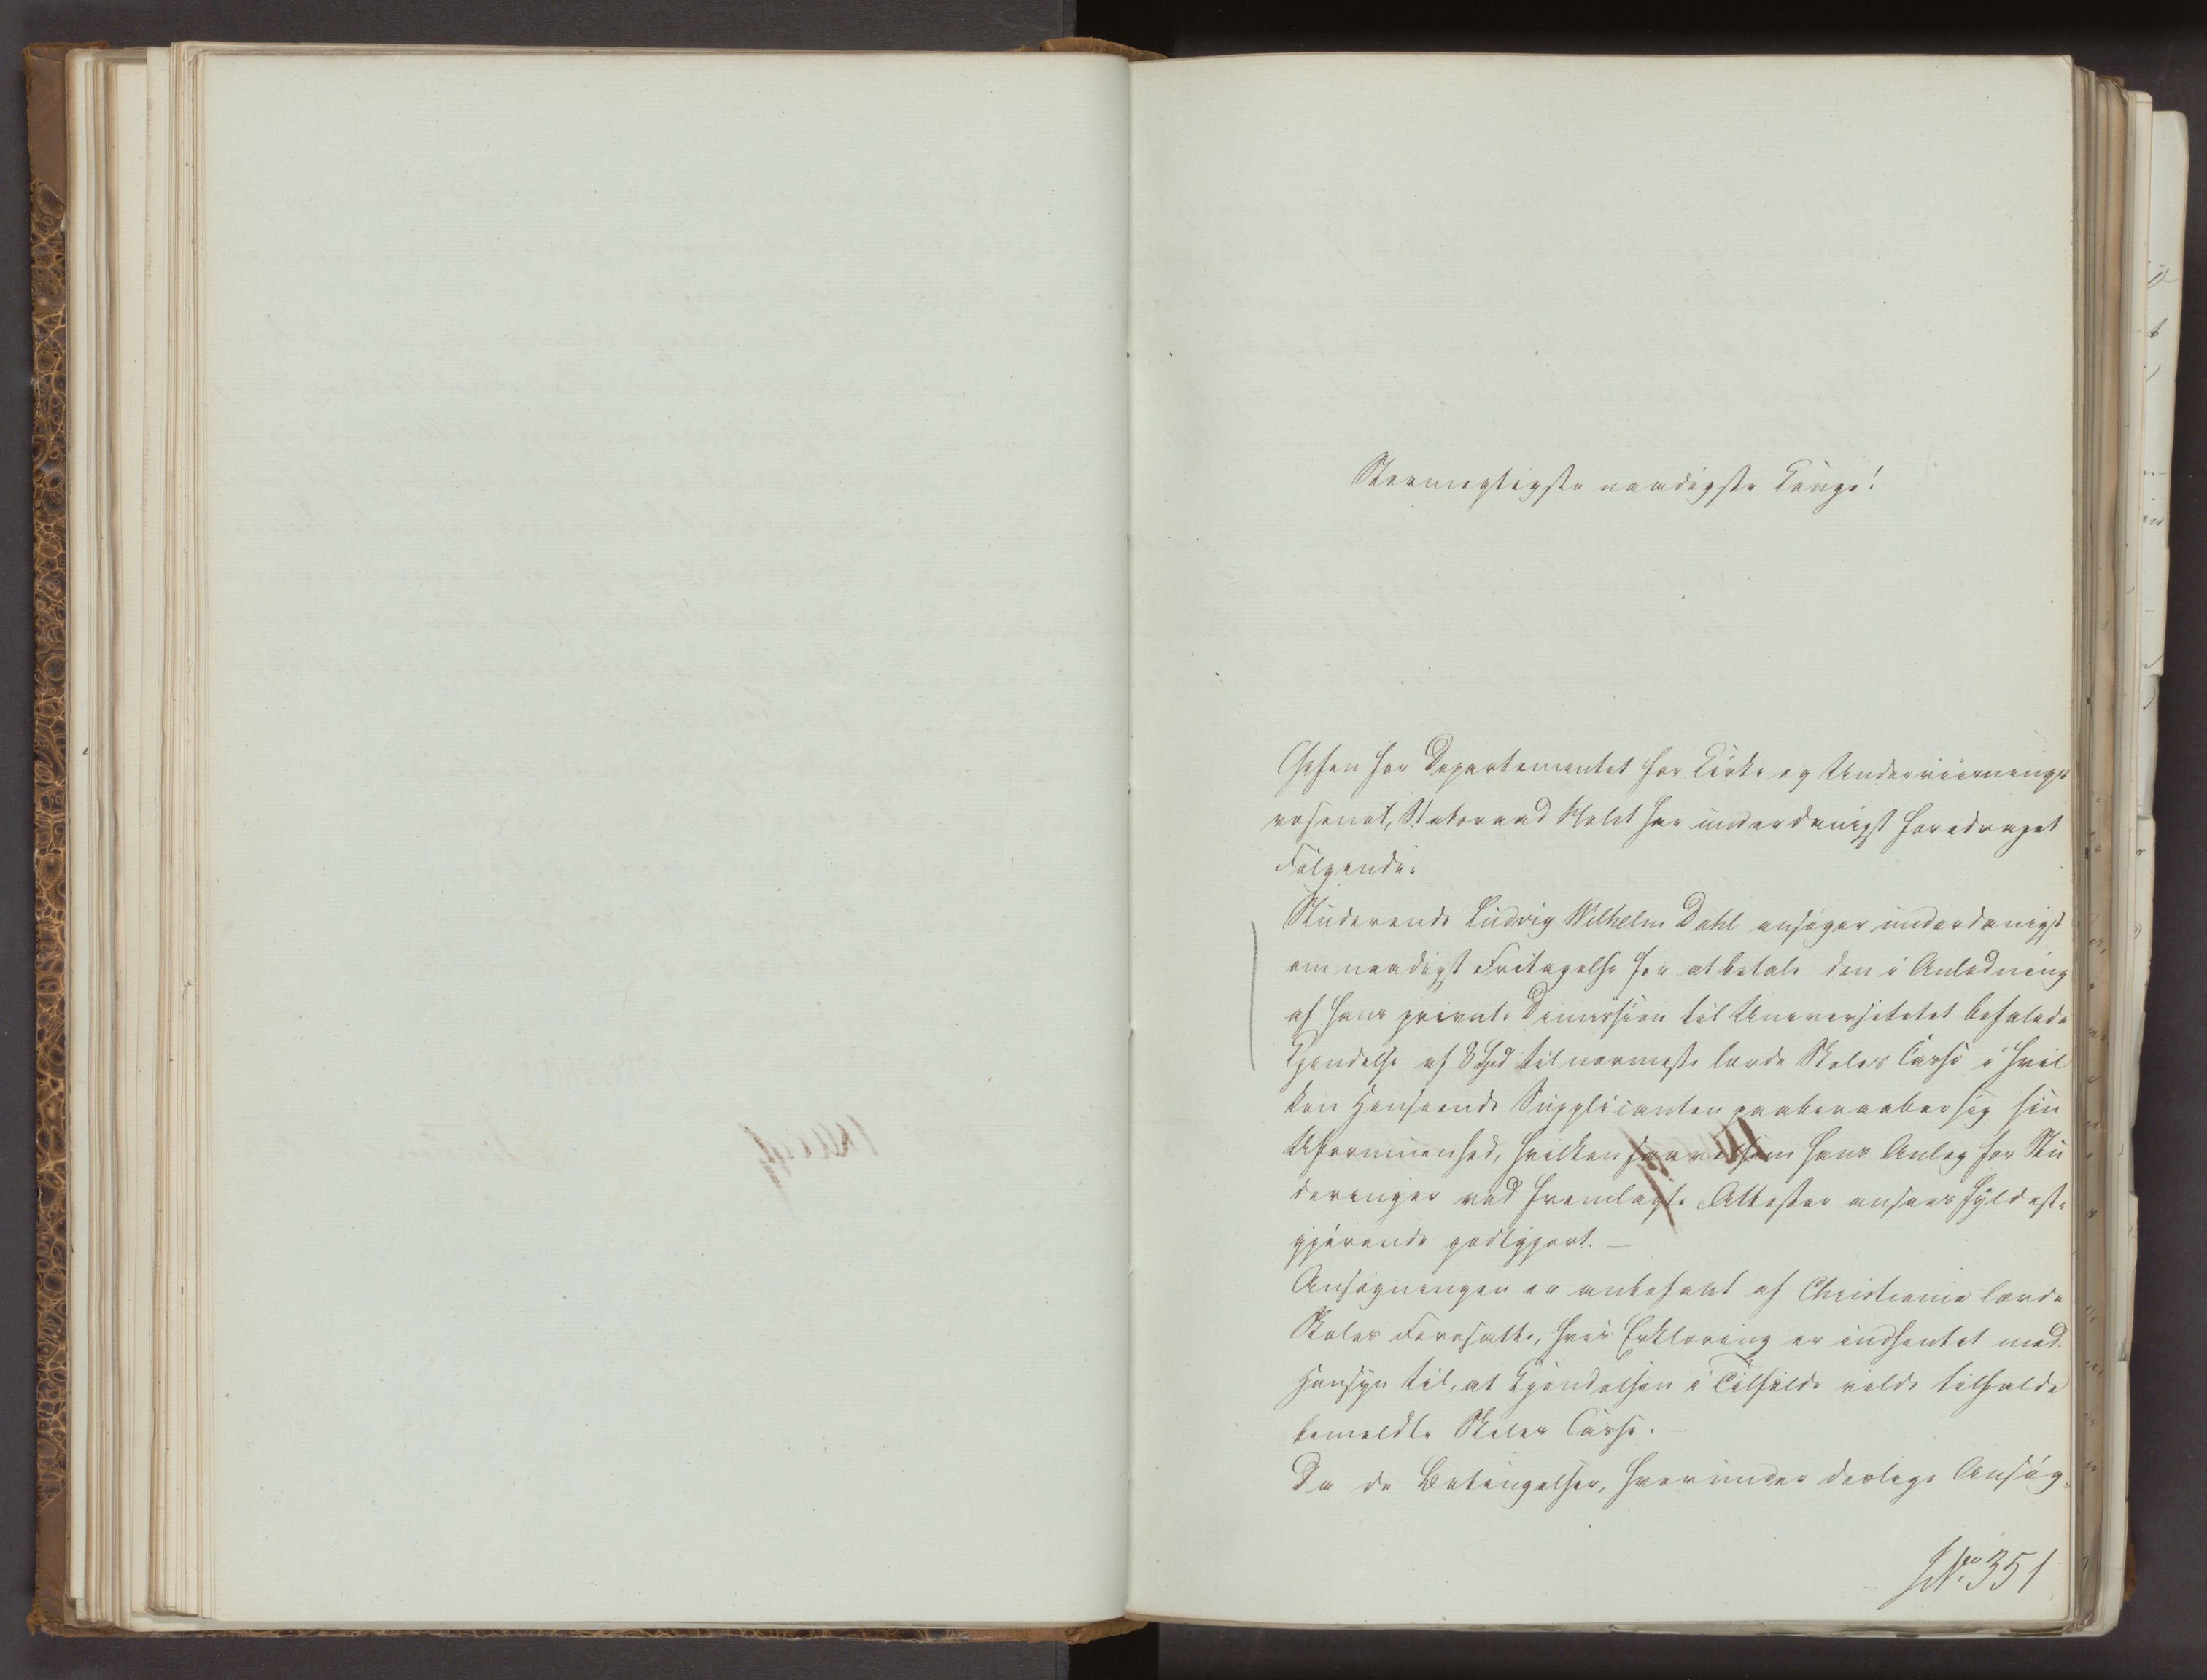 Stormægtigste naadigste Konge!
Chefen for Departementet for Kirke og Underviisnings
væsenet, Statsraad Holst har underdanigst foredraget
Følgende:
Studerende Ludvig Wilhelm Dahl ansøger underdanigst
om naadigst Fritagelse for at betale den i Anledning
af hans private Dimission til Universitetet befalede
Kjendelse af 8 Spd til nærmeste lærde Skoles Casse i hvil
ken Henseende Supplicanten paaberaaber sig sin
Uformuenhed, hvilken saavelsom hans Anlæg for Stu
deringer ved fremlagte Attester ansees fyldest-
gjørende godtgjort. —
Ansøgningen er anbefalet af Christiania lærde
Skoles Foresatte, hvis Erklæring er indhentet med
Hensyn til, at Kjendelsen i Tilfælde vilde tilfalde
bemeldte Skoles Casse. —
Da de Betingelser, hvorunder deslige Ansøg-
No 351